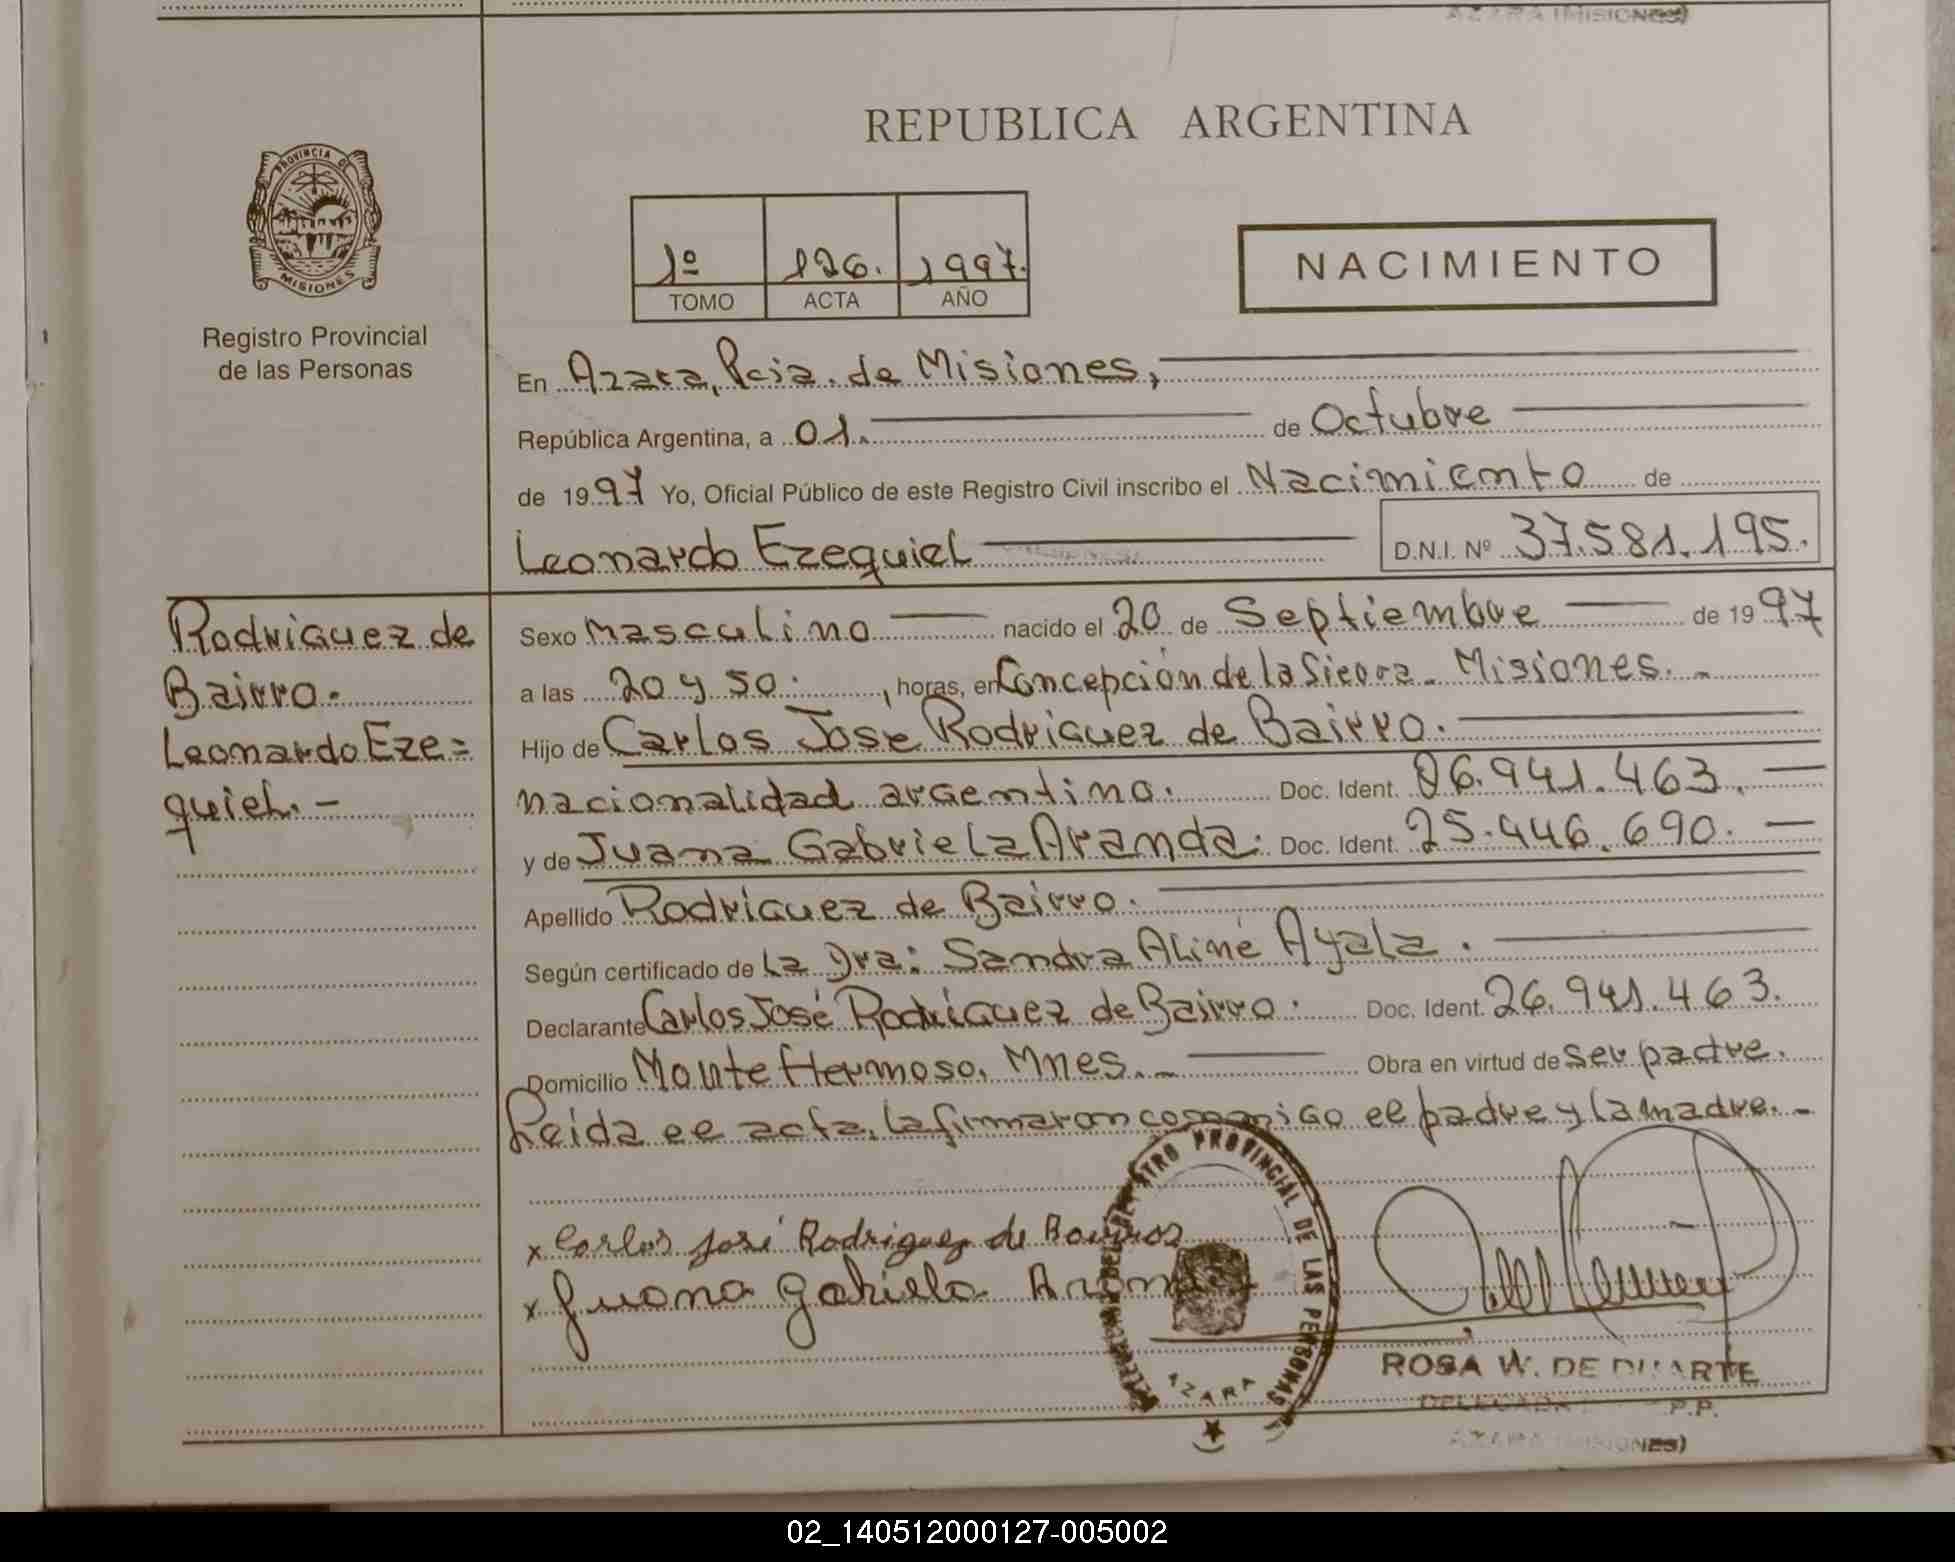 AZARA (MISIONES)
REPUBLICA ARGENTINA
PROVINCIA DE
MISIONES
Registro Provincial
de las Personas
1º 126. 1997.
TOMO ACTA AÑO
NACIMIENTO
En Azara, Pcia. de Misiones,
República Argentina, a 01. de Octubre
de 1997 Yo, Oficial Público de este Registro Civil inscribo el Nacimiento de
Leonardo Ezequiel D.N.I. Nº 37.581.195.
Rodriguez de
Bairro.-
Leonardo Eze=
quiel. -
Sexo masculino nacido el 20 de Septiembre de 1997
a las 20 y 50. , horas, en Concepción de la Sierra - Misiones. -
Hijo de Carlos Jose Rodriguez de Bairro.
nacionalidad argentino. Doc. Ident. 26.941.463. —
y de Juana Gabriela Aranda. Doc. Ident. 25.446.690. —
Apellido Rodriguez de Bairro.
Según certificado de La Dra: Sandra Aliné Ayala.
Declarante Carlos José Rodriguez de Bairro. Doc. Ident. 26.941.463.
Domicilio Monte Hermoso, Mnes. - Obra en virtud de ser padre.
Leida el acta, la firmaron conmigo el padre y la madre. -
x Carlos José Rodriguez de Bairros
x Juana Gabriela Aranda
REGISTRO PROVINCIAL DE LAS PERSONAS
AZARA
ROSA W. DE DUARTE
DELEGADA P.P.
AZARA (MISIONES)
02_140512000127-005002